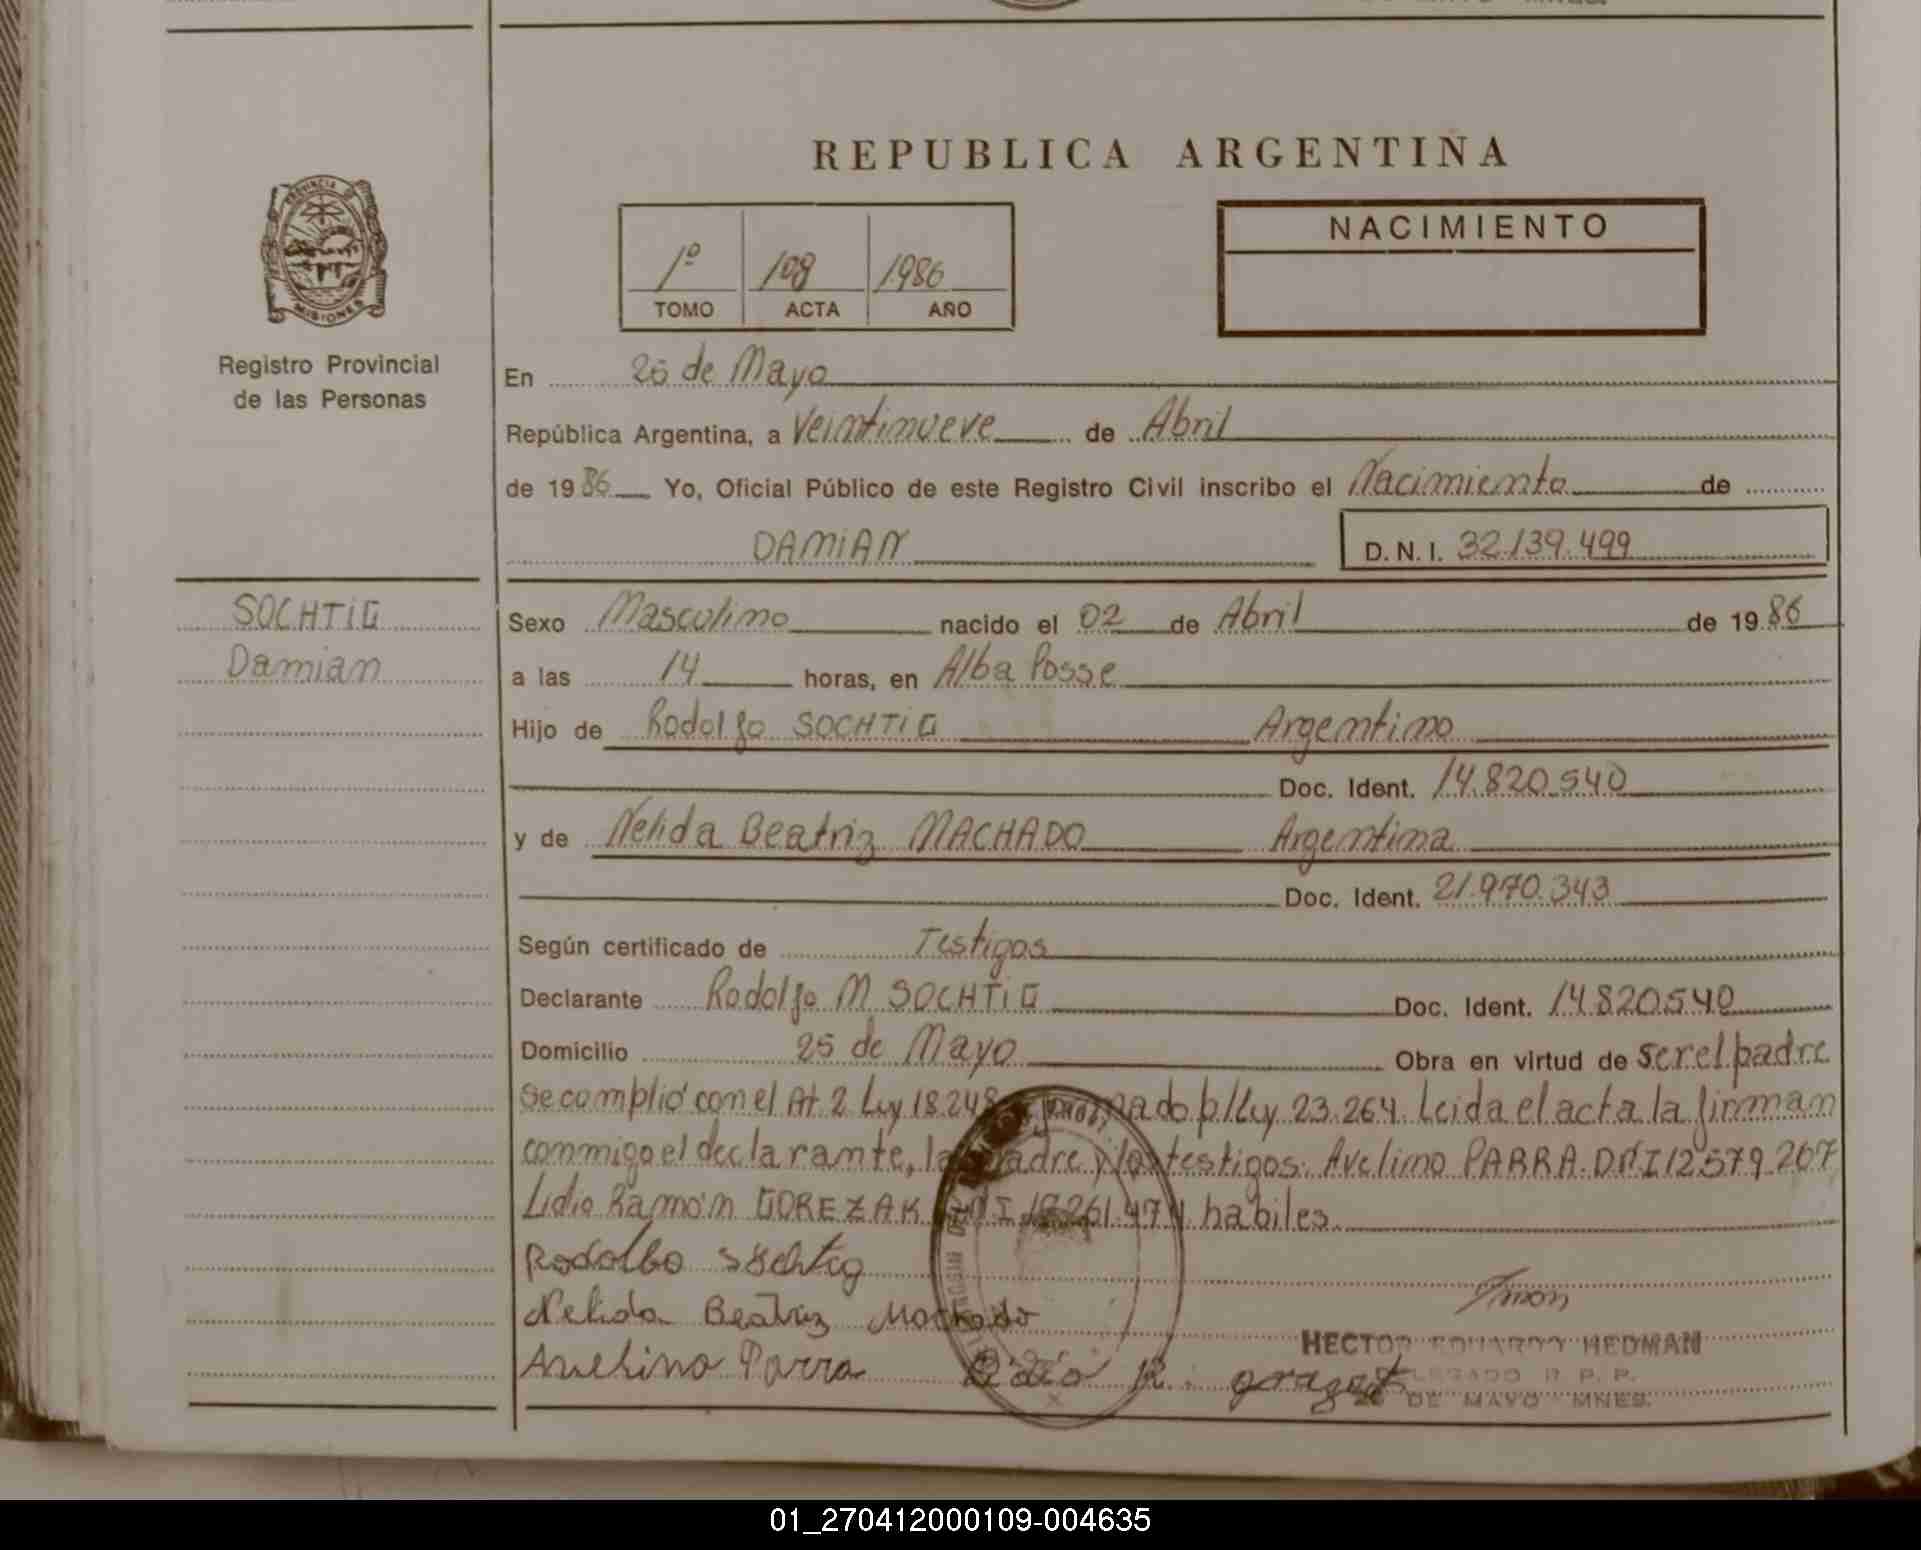 REPUBLICA ARGENTINA
PROVINCIA DE
MISIONES
Registro Provincial
de las Personas
1º 108 1986
TOMO ACTA AÑO
NACIMIENTO
En 25 de Mayo
República Argentina, a Veintinueve de Abril
de 1986 Yo, Oficial Público de este Registro Civil inscribo el Nacimiento de
DAMIAN D.N.I. 32.139.499
SOCHTIG
Damian
Sexo Masculino nacido el 02 de Abril de 1986
a las 14 horas, en Alba Posse
Hijo de Rodolfo SOCHTIG Argentino
Doc. Ident. 14.820.540
y de Nelida Beatriz MACHADO Argentina
Doc. Ident. 21.970.343
Según certificado de Testigos
Declarante Rodolfo M SOCHTIG Doc. Ident. 14.820.540
Domicilio 25 de Mayo Obra en virtud de ser el padre
Se complió con el At. 2 Ley 18.248 p/Ley 23.264. Leida el acta la firman
conmigo el declarante, la madre y los testigos: Avelino PARRA. DNI 12.579.267
Lidio Ramón GOREZAK DNI 261.474 habiles
Rodolfo Söchtig
Nelida Beatriz Machado
Avelino Parra
HECTOR EDUARDO HEDMAN
DELEGADO R. P. P.
25 DE MAYO MNES.
01_270412000109-004635